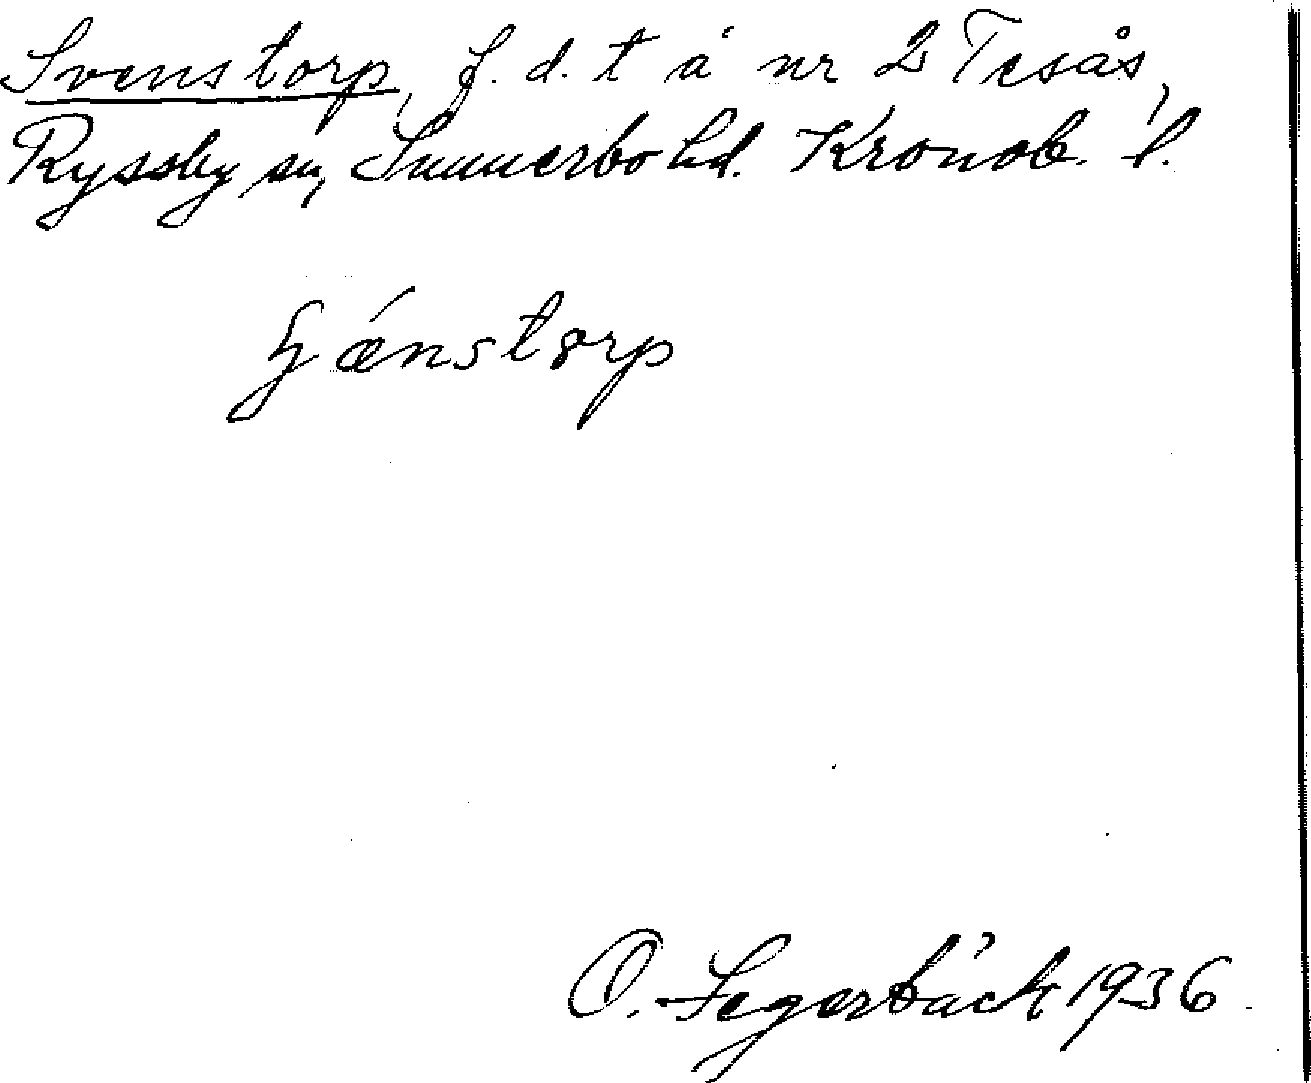 Svenstorp, f. d. t å nr 2 Tesås,
Ryssby sn, Sunnerbo hd. Kronob. l.
O. Segerbäck 1936